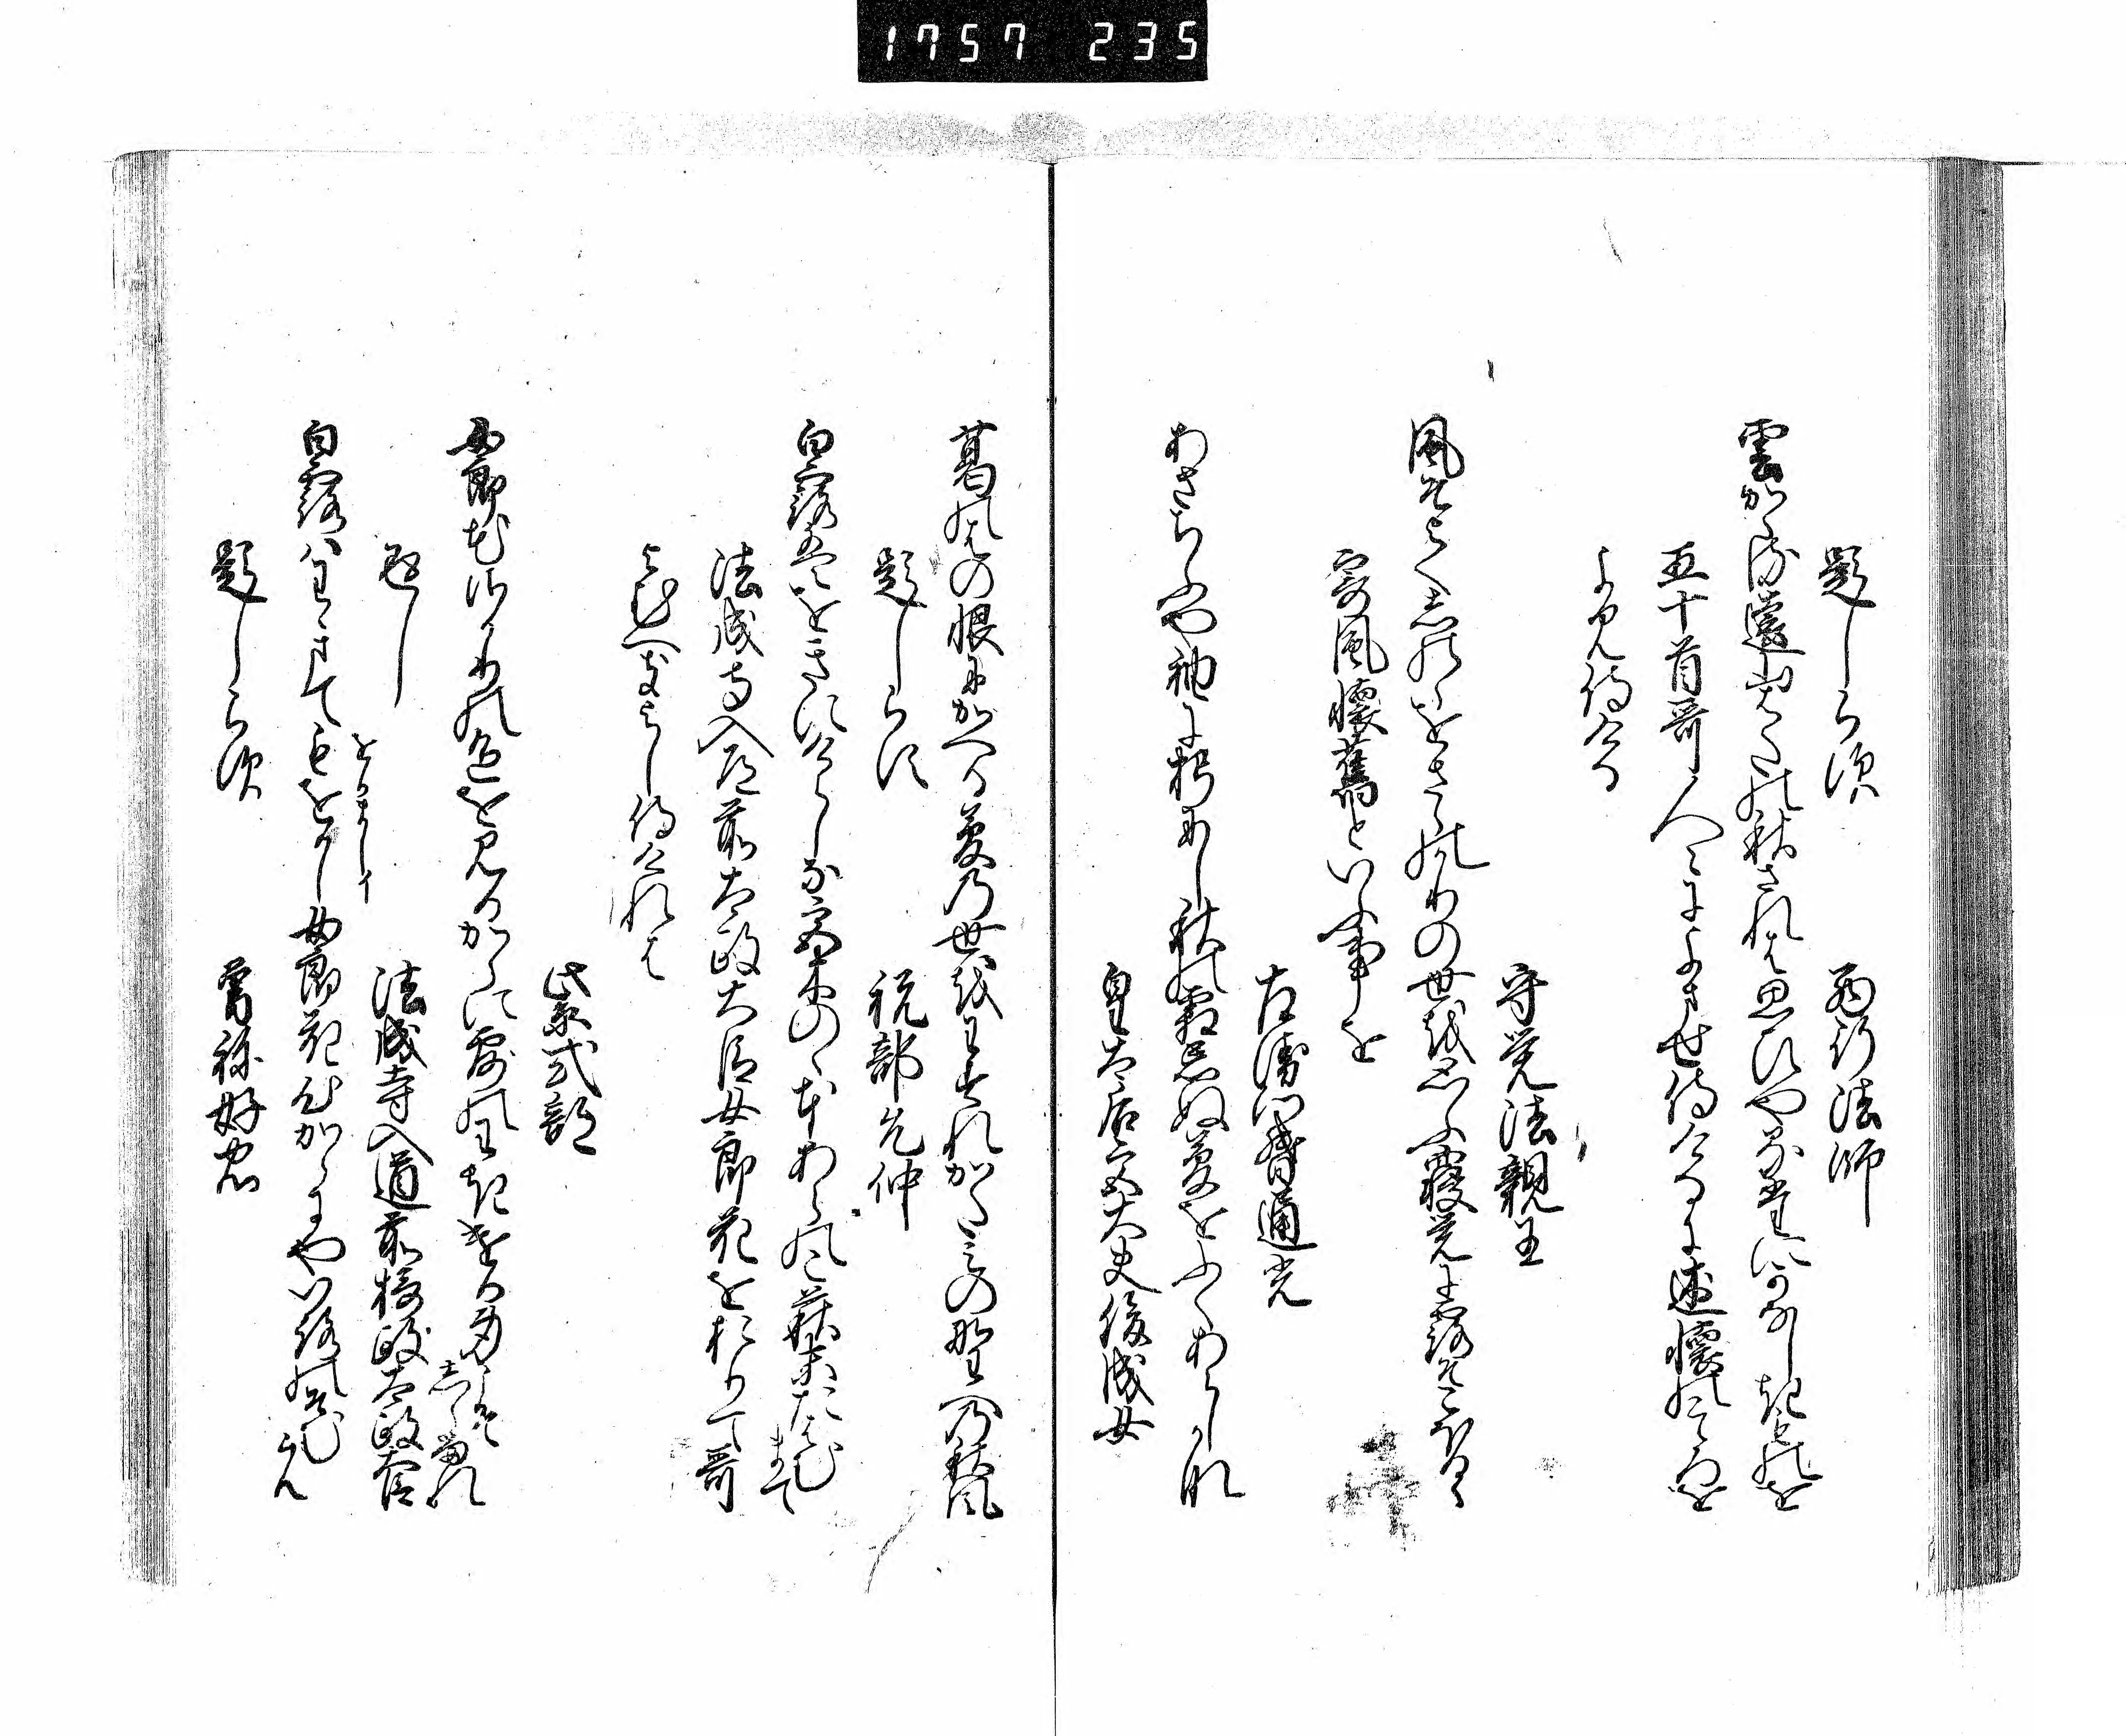 1757 235
題しら須　西行法師
雲かゝる遠山はたの秋されは思ひやるたにかなしき物を
五十首哥人々によませ侍ける に述懐の心を
よみ侍ける
守覚法親王
風そよくしのゝをさゝのかりの世を思ふ寝覚に露そこほるゝ
寄風懐舊といふ事を
左衛門督通光
あさちふや袖に朽にし秋の霜忘ぬ夢をふくあらしかな
皇太后宮大夫俊成女
葛の葉の恨にかへる夢の世を王すれかたみの野への秋風
題しらす　祝部允仲
白露はをきにけらしな宮木のゝもとあらのこ萩末たはむまて
法成寺入道前太政大臣女郎花をおりて哥
よむへきよし侍けれは
紫式部
女郎花さかりの色を見るからに露のわきける身こそしらるれ
返し　法成寺入道前摂政太政大臣
白露ハわきてもをかし女郎花心からにや色の染むらん
をかましイ
題しら須　曽祢好忠